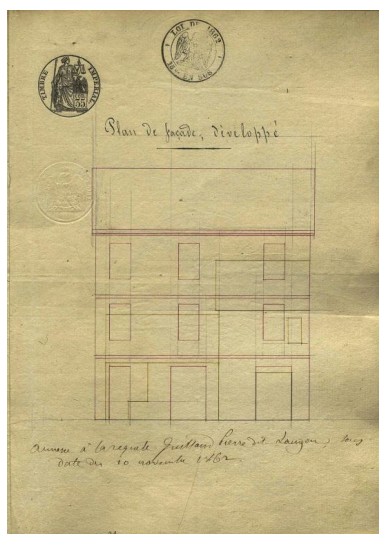 LOI DE 1862
EN SUS
TIMBRE IMPÉRIAL
35
Plan de façade, développé
annexé à la requête Guilland Pierre dit Laugeu, sous
date du 10 novembre 1862.